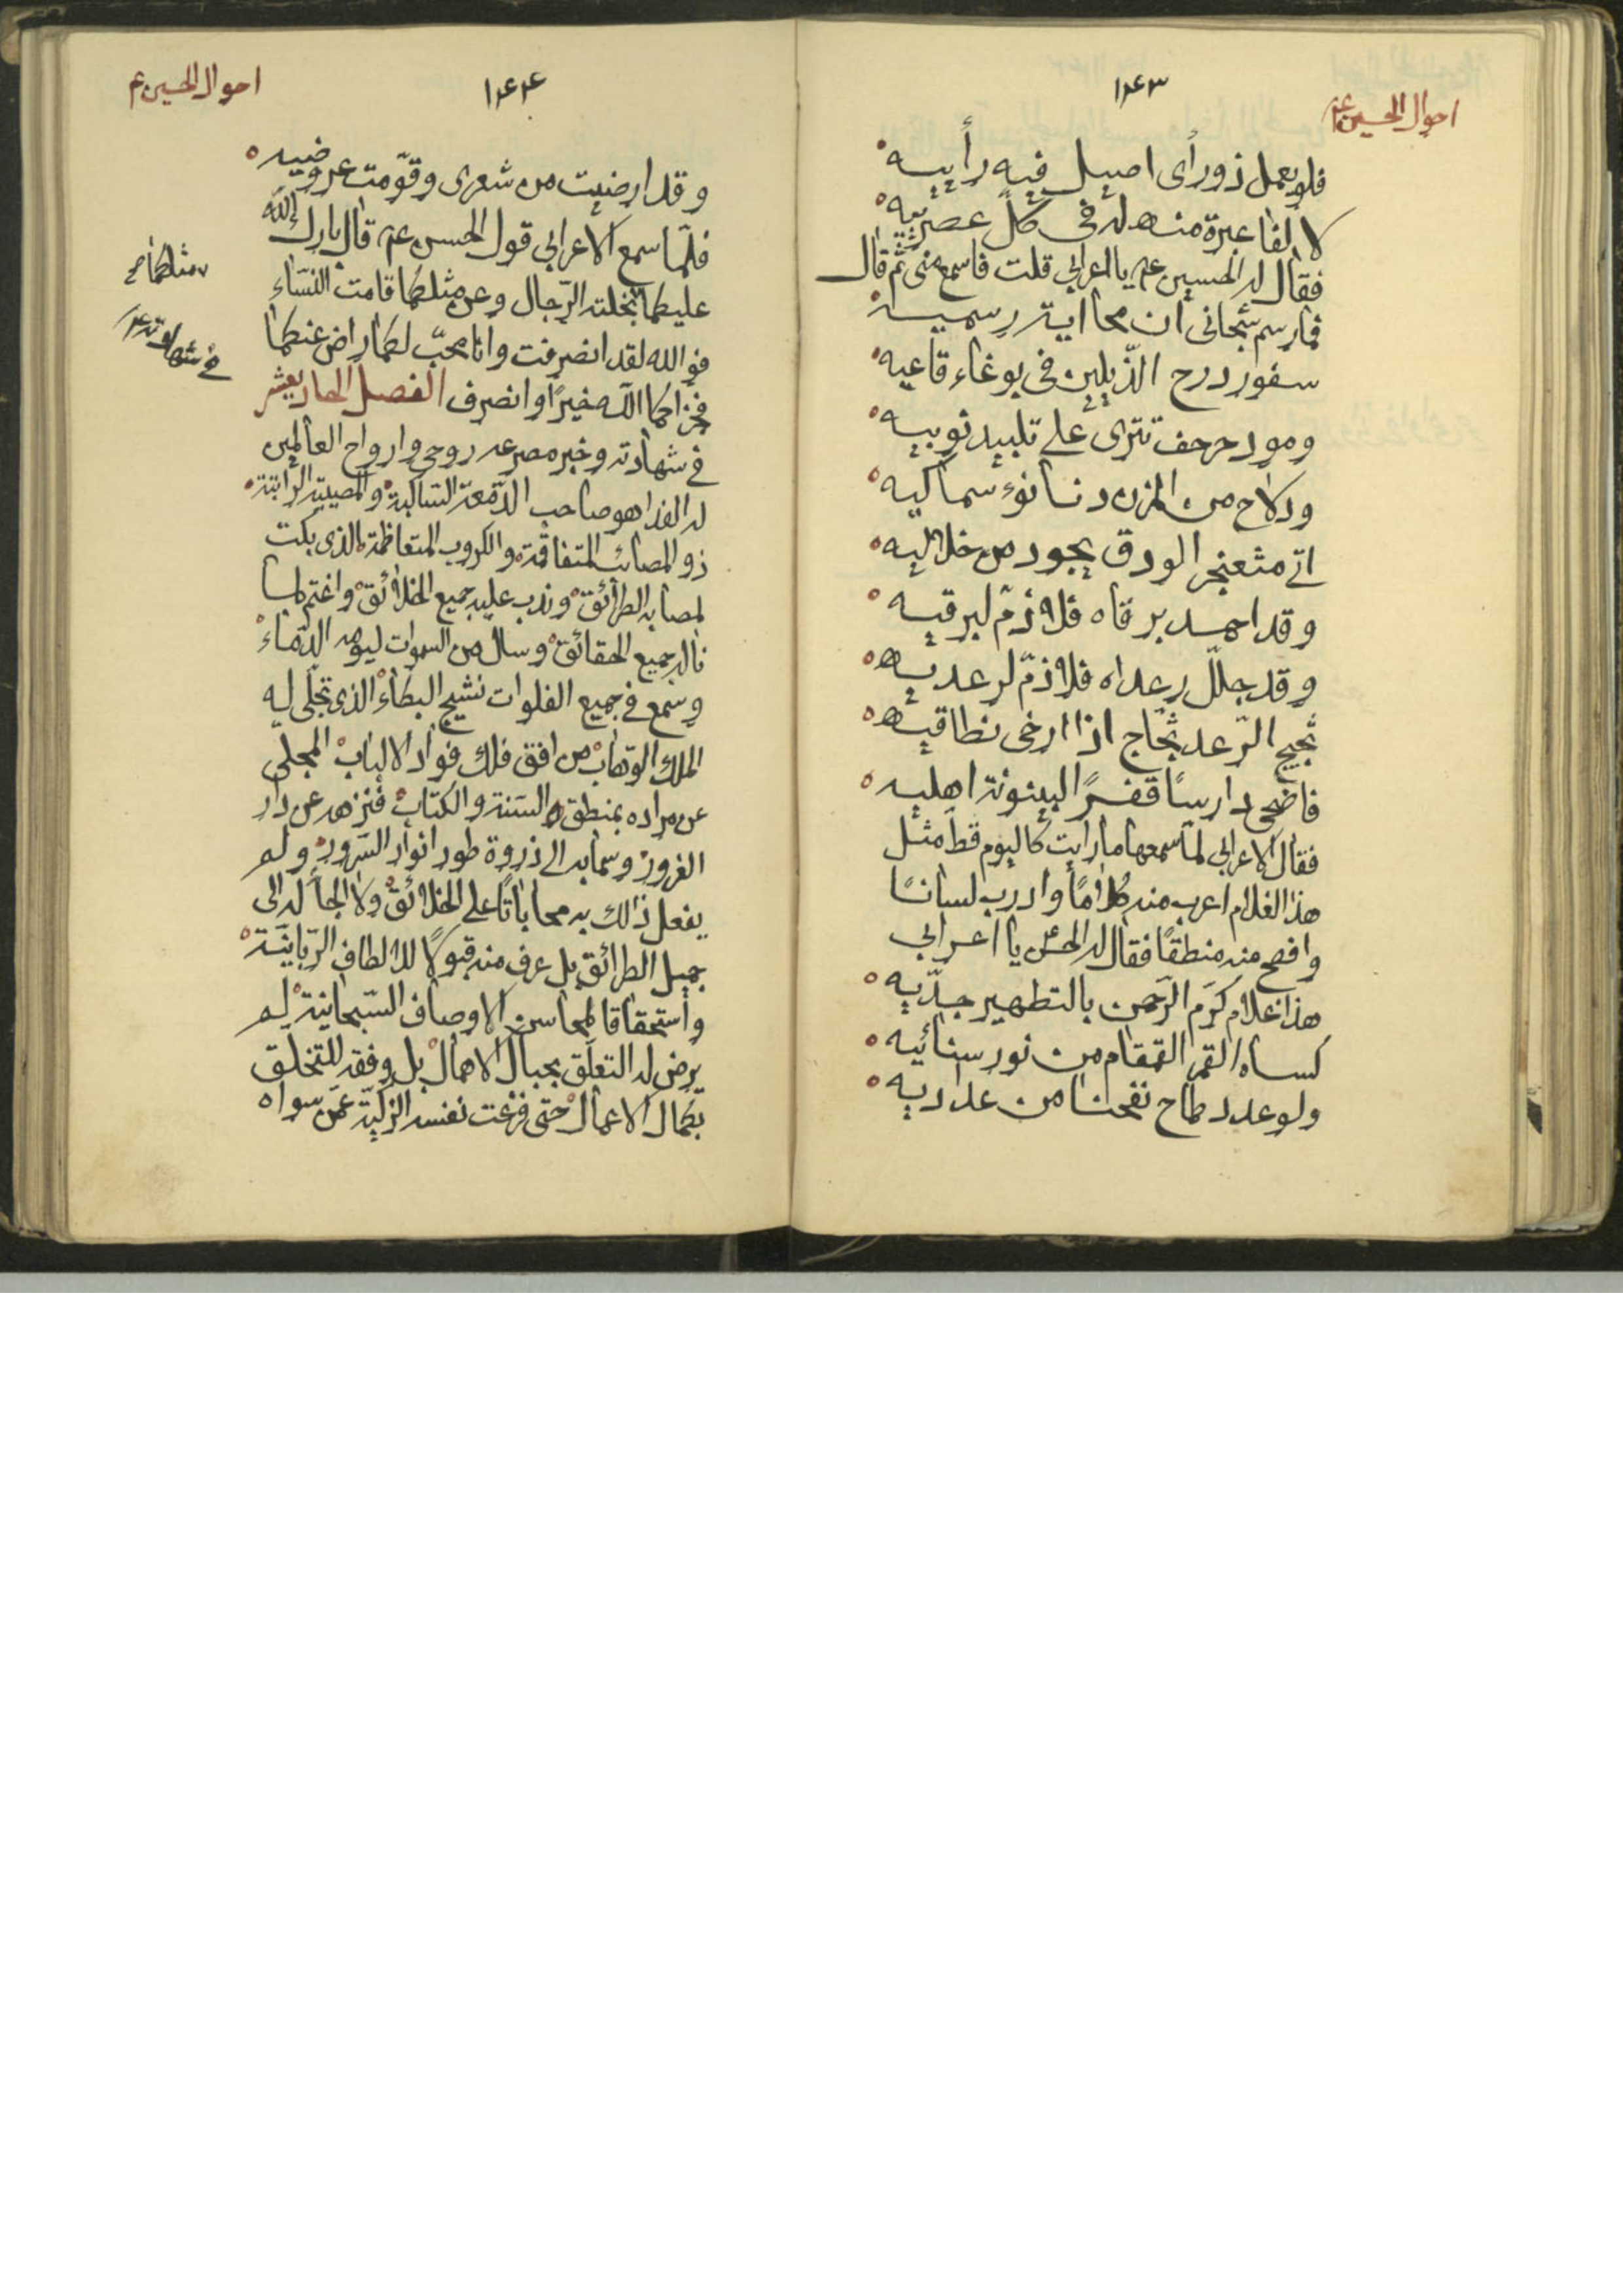 احوال الحسين ع
١٤٣
فلو يعمل ذو رأى اصيل فيه رأييه
لألفا عبرة منه له فى كل عصرييه
فقال له الحسين ع يا اعرابي قلت فاسمع منى ثم قال
فما رسم شجانى ان محا اية رسميه
سفور درج الذيلين فى بوغاء قاعيه
ومور حرجف تترى على تلبيد ثوبيه
ودلاح من المزن دنا نوء سماكيه
اتى مثعنجر الودق بجود من خلاليه
وقد احمد برقاه فلا ذم لبرقيه
وقد جلل رعداه فلا ذم لرعديه
ثجيج الرعد ثجاج اذا ارخى نطاقيه
فاضحى دارسا قفرا لبينونة اهليه
فقال الاعرابي لما سمعها ما رايت كاليوم قط مثل
هذا الغلام اعرب منه كلاما وادرب لسانا
وافصح منه منطقا فقال له الحسن يا اعرابي
هذا غلام كرم الرحمن بالتطهير جديه
كساه القمر القمقام من نور سنائيه
ولو عدد طماح نفحنا من عداديه
احوال الحسين ع
١٤٤
وقد ارضيت من شعرى وقومت عروضيه
فلما سمع الاعرابي قول الحسن ع قال بارك الله
عليكما مثلكما نجلته الرجال وعن مثلكما قامت النساء
فوالله لقد انصرفت وانا محب لكما راض عنكما
فجزاكما الله خيرا وانصرف الفصل الحاديعشر
فى شهادته وخبر مصرعه روحى وارواح العالمين
له الفدا هو صاحب الدمعة الساكبة والمصيبة الراتبة
ذو المصائب المتفاقمة والكروب المتعاظمة الذى بكت
لمصابه الطرائق وندب عليه جميع الخلائق واغتم لما
ناله جميع الحقائق وسال من السموات ليومه الدماء
وسمع فى جميع الفلوات نشيج البكاء الذى تجلى له
الملك الوهاب من افق فلك فواد الالباب المجلى
عن مراده بمنطق السنة والكتاب فنزهه عن دار
الغرور وسما به الى ذروة طور انوار السرور ولم
يفعل ذلك به محاباتا على الخلائق ولا الجأ له الى
جميل الطرائق بل عرف منه قبولا للالطاف الربانية
واستحقاقا لمحاسن الاوصاف السبحانية لم
يرض له التعلق بحبال الاهمال بل وفقه للتخلق
بكمال الاعمال حتى فزعت نفسه الزكية عمن سواه
مثلكما صح
فى شهادته ع